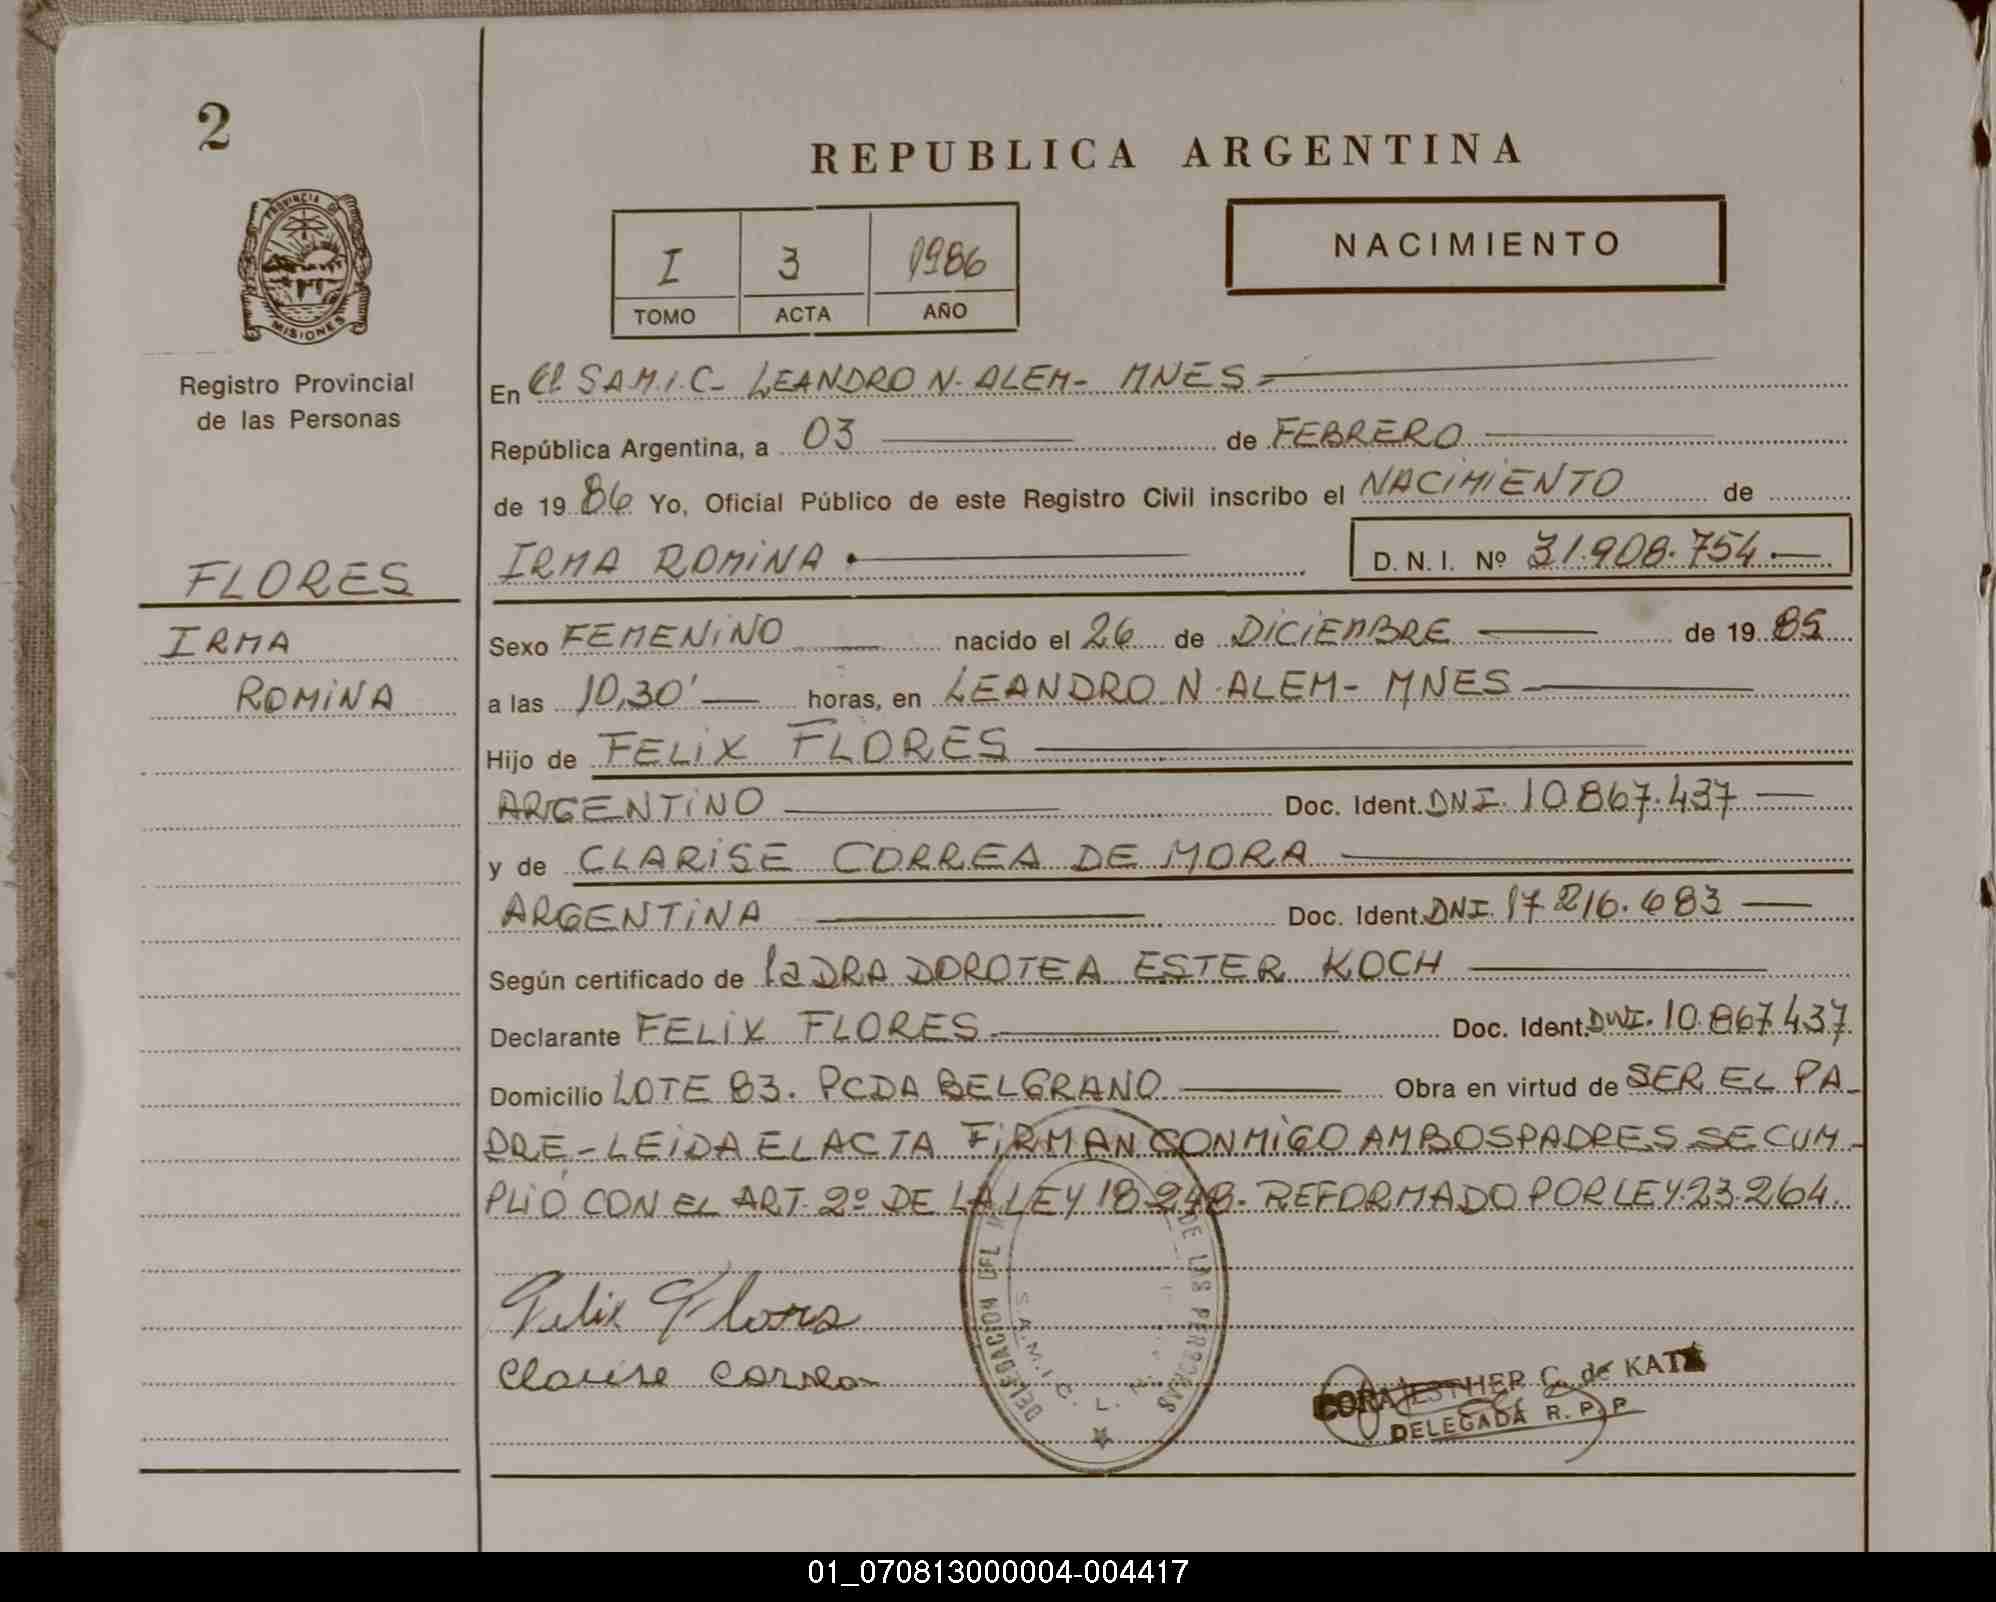 2
PROVINCIA DE
MISIONES
Registro Provincial
de las Personas
FLORES
IRMA
ROMINA
REPUBLICA ARGENTINA
I 3 1986
TOMO ACTA AÑO
NACIMIENTO
En El SAM.I.C- LEANDRO N. ALEM- MNES
República Argentina, a 03 de FEBRERO
de 19 86 Yo, Oficial Público de este Registro Civil inscribo el NACIMIENTO de
IRMA ROMINA D. N. I. Nº 31.908.754
Sexo FEMENINO nacido el 26 de DICIEMBRE de 19 85
a las 10,30' horas, en LEANDRO N. ALEM- MNES
Hijo de FELIX FLORES
ARGENTINO Doc. Ident. DNI. 10.867.437
y de CLARISE CORREA DE MORA
ARGENTINA Doc. Ident. DNI. 17.216.683
Según certificado de la DRA DOROTEA ESTER KOCH
Declarante FELIX FLORES Doc. Ident. DNI. 10.867.437
Domicilio LOTE 83. PCDA BELGRANO Obra en virtud de SER EL PA
DRE-LEIDA EL ACTA FIRMAN CONMIGO AMBOS PADRES SE CUM-
PLIÓ CON EL ART. 2º DE LA LEY 18.248. REFORMADO POR LEY.23.264.
Felix Flores
Clarise Correa
DELEGACION DEL DE LAS PERSONAS
S.A.M.I.C. L.
CORA ESTHER C. de KATZ
DELEGADA R. P. P
01_070813000004-004417